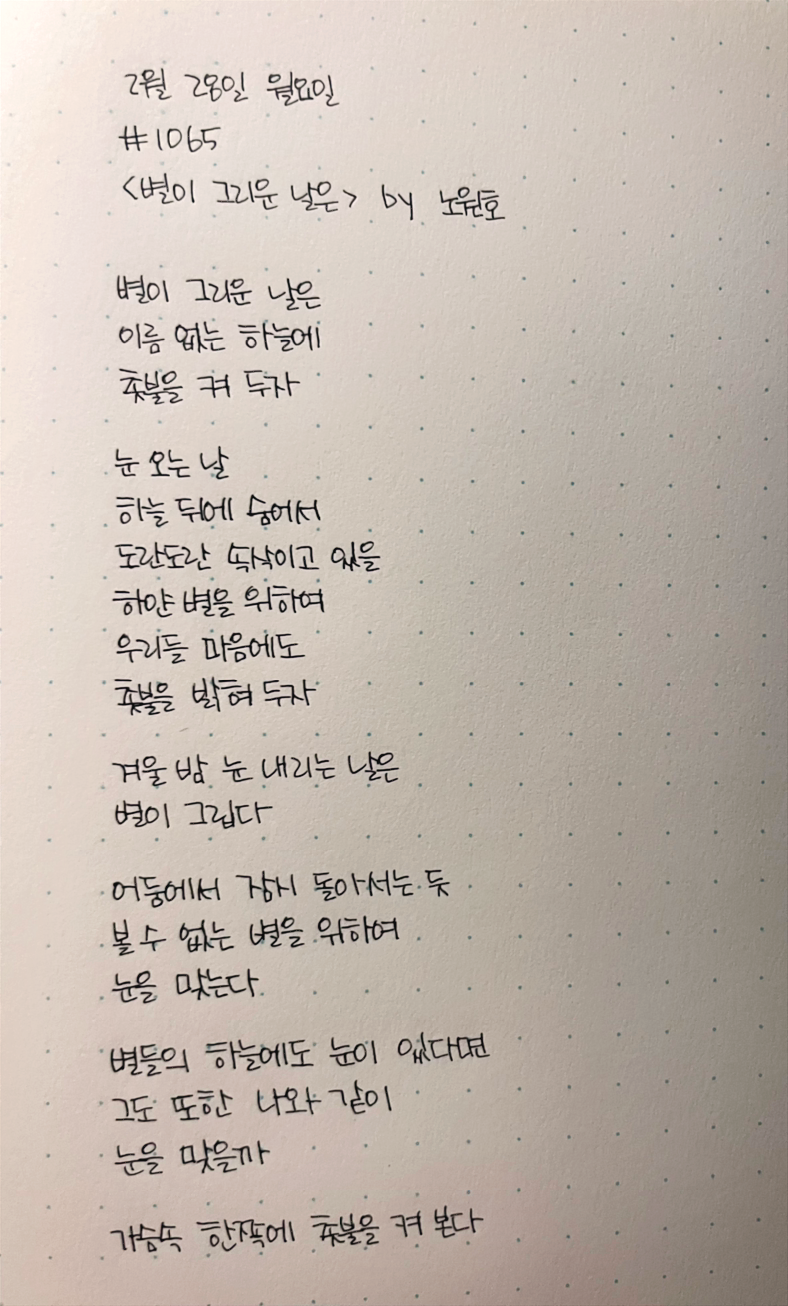 2월 28일 월요일
#1065
<별이 그리운 날은> by 노원호
별이 그리운 날은
이름 없는 하늘에
촛불을 켜 두자
눈 오는 날
하늘 뒤에 숨어서
도란도란 속삭이고 있을
하얀 별을 위하여
우리들 마음에도
촛불을 밝혀 두자
겨울 밤 눈 내리는 날은
별이 그립다
어둠에서 잠시 돌아서는 듯
볼 수 없는 별을 위하여
눈을 맞는다.
별들의 하늘에도 눈이 있다면
그도 또한 나와 같이
눈을 맞을까
가슴속 한쪽에 촛불을 켜 본다